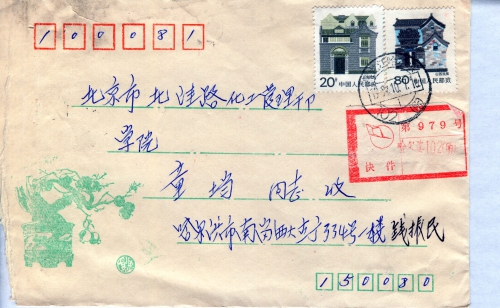 100081
20分 中国人民邮政
80分 中国人民邮政
北京市北洼路化工管理干
第979号
学院
快件
童 同志收
哈尔滨市南岗西大直街334号一楼 钱振民
150080